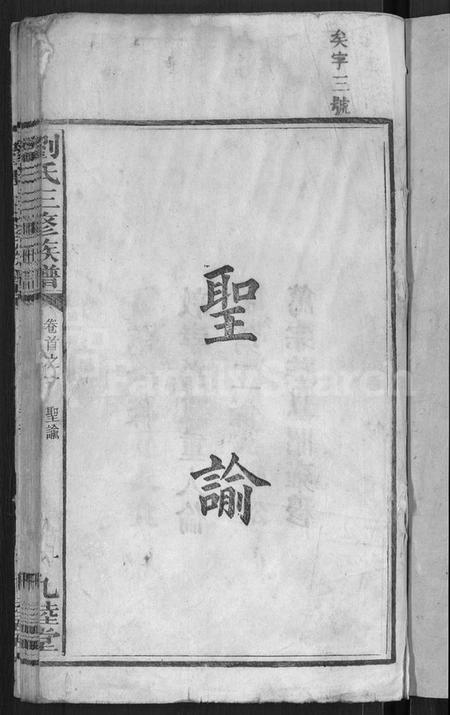 矣字三號
聖
諭
劉氏三修族譜
卷首之一
聖諭
一
九睦堂
FamilySearch